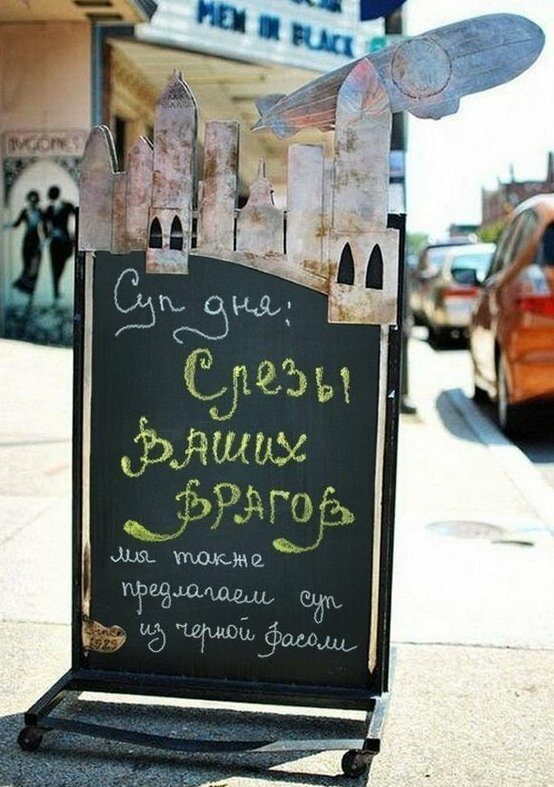 MEN IN BLACK
BYGONES
Суп дня:
Слезы
ВАШИХ
ВРАГОВ
мы также
предлагаем суп
из черной фасоли
Since
1929